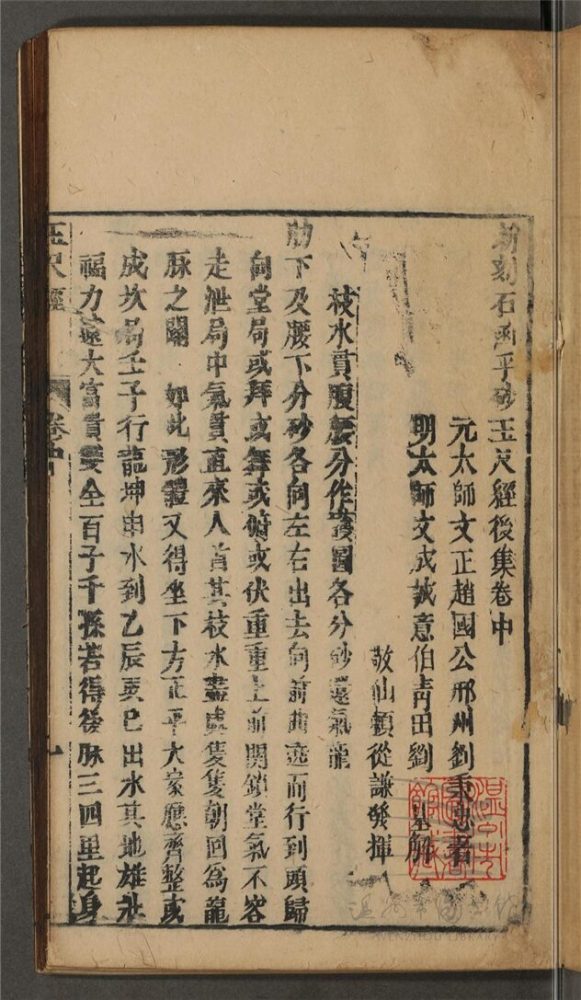 新刻石函平砂玉尺經後集卷中
元太師文正趙國公邢州劉秉忠著
明太師文成誠意伯青田劉基解
敬仙賴從謙發揮
枝水貫腹腰分作護圖各分砂還氣龍
肋下及腰下分砂各向左右出去向前曲迄而行到頭歸
向堂局或拜或舞或俯或伏重重上前関鎖堂氣不容
走泄局中氣貫直來人首其枝水盡處隻隻朝回為龍
脉之關 如此形體又得坐下方正平大案應齊整或
成坎局壬子行龍坤申水到乙辰巽巳出水其地雄壯
福力遠大富貴雙全百子千孫若得後脉三四里起身
玉尺經 卷中 九